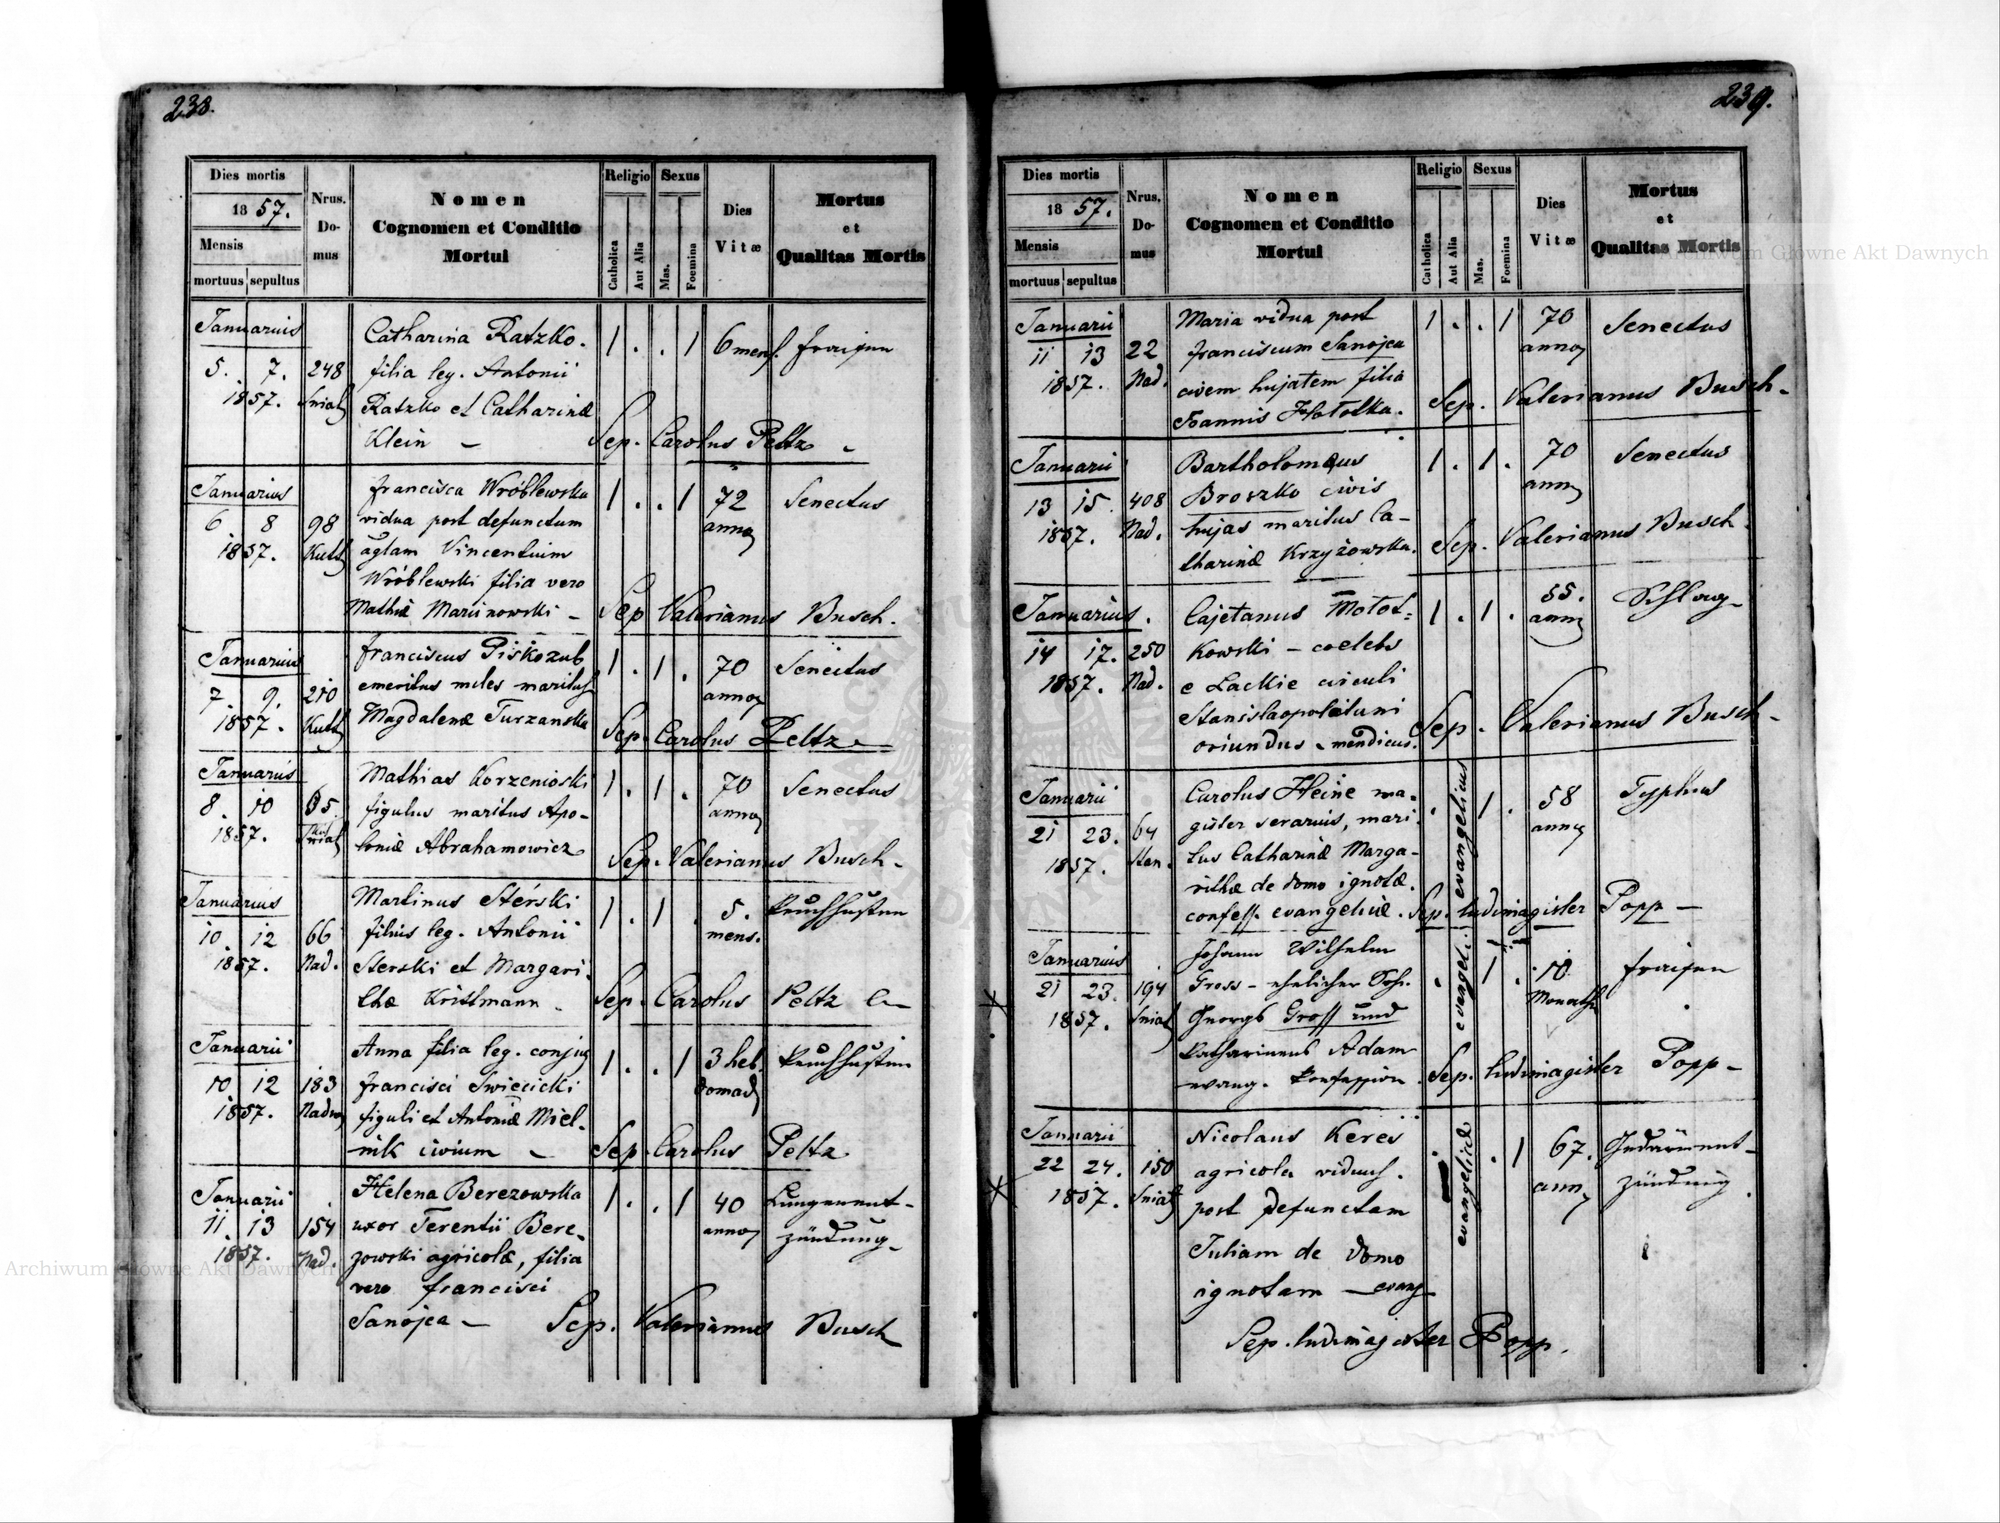 238.
Dies mortis
1857.
Mensis
mortuus sepultus
Nrus. Domus
Nomen
Cognomen et Conditio
Mortui
Religio
Catholica
Aut Alia
Sexus
Mas.
Foemina
Dies
Vitæ
Mortus
et
Qualitas Mortis
Januarius
5. 7. 248
1857. Sniat
Catharina Ratzko.
filia leg. Antonii
Ratzko et Catharinæ
Klein –
1 . . 1 6 mens. Fraisen
Sep. Carolus Peltz
Januarius
6 8 98
1857. Kutt
Francisca Wróblewska
vidua post defunctum
Vincentium
Wróblewski filia vero
Mathiæ Marcinowski –
1 . . 1 72 Senectus
annor
Sep Valerianus Busch.
Januarius
7. 9. 210
1857. Kutt
Franciscus Piskozub
emeritus miles maritus
Magdalenæ Turzanska
1 . 1 . 70 Senectus
annor
Sep. Carolus Peltz
Januarius
8. 10 65.
1857. Sniat
Mathias Korzenioski
figulus maritus Apo-
loniæ Abrahamowicz
1 . 1 . 70 Senectus
annor
Sep. Valerianus Busch.
Januarius
10. 12 66
1857. Nad.
Martinus Sterski
filius leg. Antonii
Sterski et Margari-
thæ Kristmann
1 . 1 . 5. Keuchhusten
mens.
Sep. Carolus Peltz
Januarii
10 12 183
1857. Nadw
Anna filia leg. conjug
Francisci Swiecicki
figuli et Antoniæ Miel-
nik civium –
1 . . 1 3 heb. Keuchhusten
domad
Sep. Carolus Peltz
Januarii
11. 13 154
1857. Nad.
Helena Berezowska
uxor Terentii Bere-
zowski agricolæ, filia
vero Francisci
Sanojca –
1 . . 1 40 Lungenent-
annor zündung
Sep. Valerianus Busch
239.
Dies mortis
1857.
Mensis
mortuus sepultus
Nrus. Domus
Nomen
Cognomen et Conditio
Mortui
Religio
Catholica
Aut Alia
Sexus
Mas.
Foemina
Dies
Vitæ
Mortus
et
Qualitas Mortis
Januarii
11 13 22
1857. Nad.
Maria vidua post
Franciscum Sanojca
civem hujatem filia
Joannis
1 . . 1 70 Senectus
annor
Sep. Valerianus Busch.
Januarii
13 15. 408
1857. Nad.
Bartholomæus
Broszko civis
hujas maritus Ca-
tharinæ Krzyżowska.
1 . 1 . 70 Senectus
annor
Sep. Valerianus Busch.
Januarius.
14 17. 250
1857. Nad.
Cajetanus Mołot-
kowski – coelebs
e Lackie circuli
Stanislaopolitani
oriundus – mendicus.
1 . 1 . 55. Schlag
annor
Sep. Valerianus Busch.
Januarii
21 23. 64
1857. Stan.
Carolus Heine ma-
gister serarius, mari-
tus Catharinæ Marga-
rithæ de domo ignotæ.
confess. evangelicæ.
. evangelicus 1 . 58 Typhus
annor
Sep. ludimagister Popp –
Januarius
21 23. 194
1857. Sniat
Johann Wilhelm
Gross – ehelicher Sohn
Georgs Gross und
Katharinens Adam
evang. Konfession.
. evangeli. 1 . 10 Fraisen
Monath
Sep. ludimagister Popp –
Januarii
22 24. 150
1857. Sniat
Nicolaus Kereś
agricola viduus.
post defunctam
Juliam de domo
ignotam – evang
evangelicæ . 1 67. Gedärment-
annor zündung.
Sep. ludimagister Popp.
Archiwum Główne Akt Dawnych
Archiwum Główne Akt Dawnych